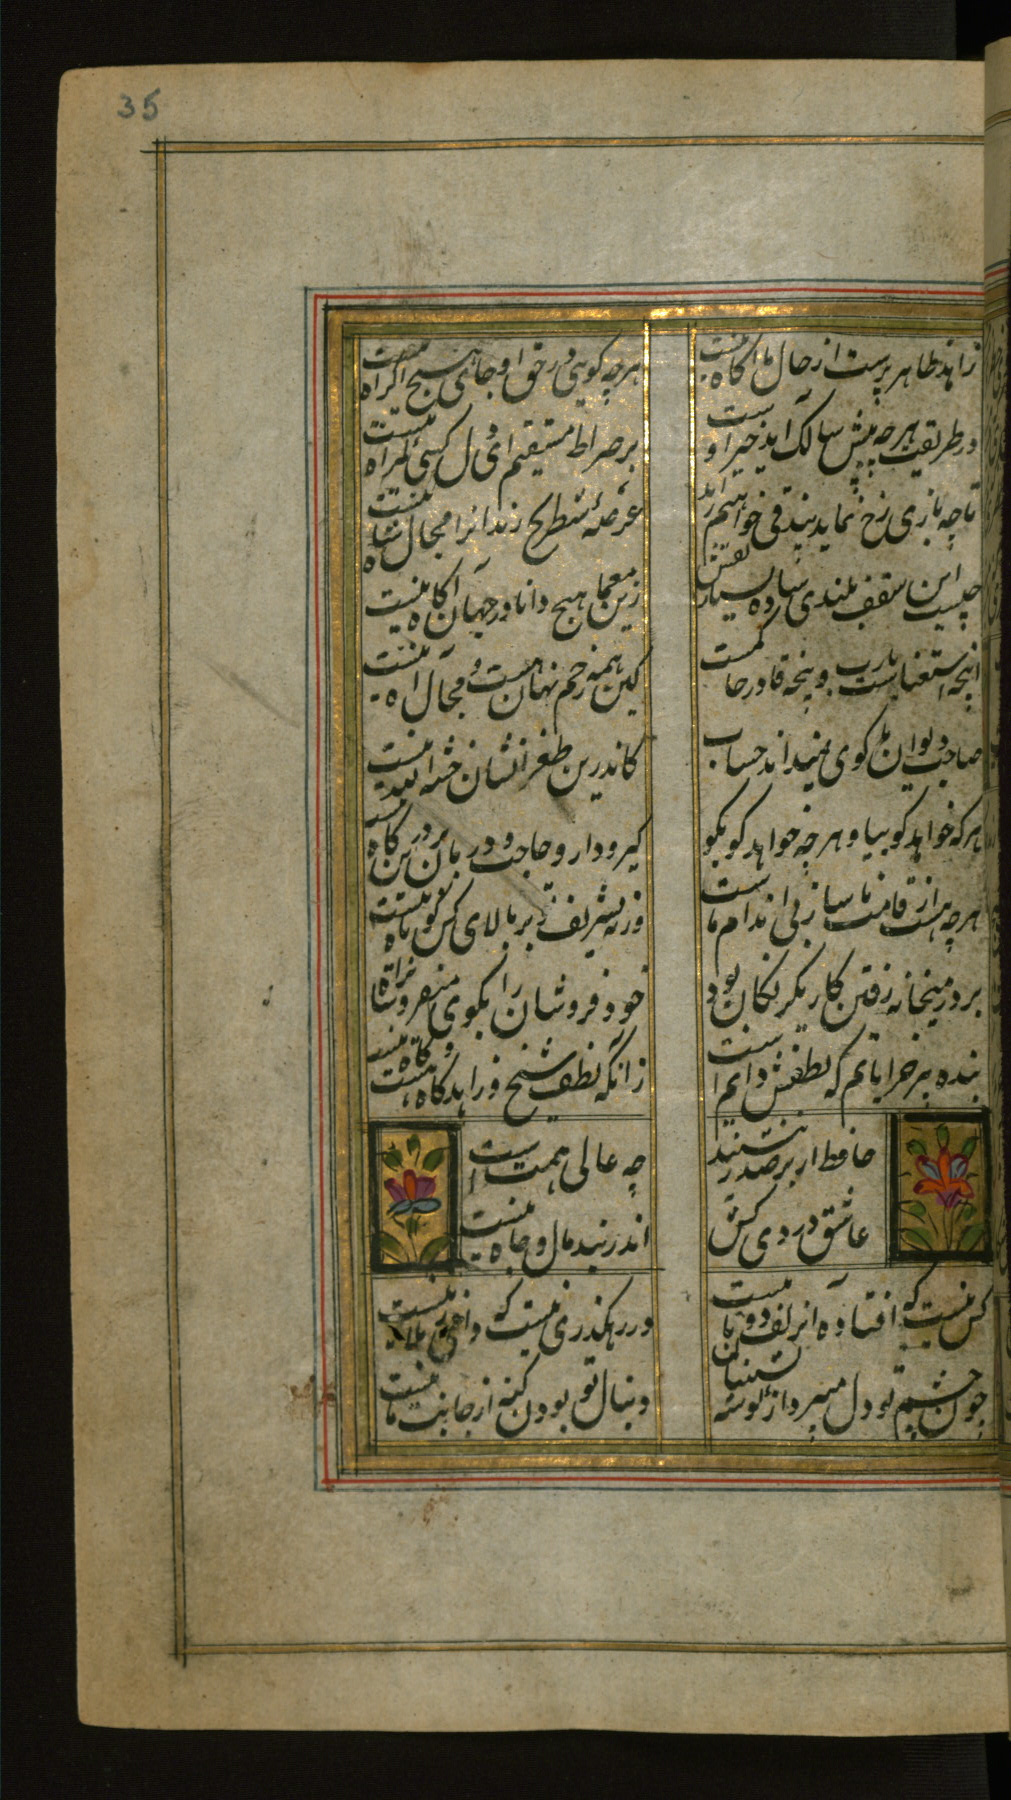 35
زاهد ظاهر پرست از حال ما آگاه نیست
هر چه گویی در حق او جای هیچ اکراه نیست
در طریقت هر چه پیش سالک آید خیر اوست
بر صراط مستقیم ای دل کسی گمراه نیست
تا چه بازی رخ نماید بیدقی خواهیم راند
عرصهٔ شطرنج رندانرا مجال شاه نیست
چیست این سقف بلندی ساده بسیار نقش
زین معما هیچ دانا در جهان آگاه نیست
اینچه استغناست یارب وینچه قادر حاکمست
کین همه زخم نهان هست و مجال آه نیست
صاحب دیوان ما گوی نمیداند حساب
کاندرین طغرا نشان حسبة لله نیست
هر که خواهد گو بیا و هر چه خواهد گو بگو
گیر و دار و حاجب و دربان برین درگاه نیست
هر چه هست از قامت ناساز بی اندام ماست
ورنه تشریف تو بر بالای کس کوتاه نیست
بر در میخانه رفتن کار یکرنگان بود
خود فروشان را بکوی میفروشان راه نیست
بنده پیر خراباتم که لطفش دایم است
زانکه لطف شیخ و زاهد گاه هست و گاه نیست
حافظ ار بر صدر ننشیند
چه عالی همت است
عاشق دردی کش
اندر بند مال و جاه نیست
کس نیست که افتاده آنزلف دوتا نیست
در رهگذری نیست که دامی ز بلا نیست
چون چشم تو دل میبرد از گوشه نشینان
دنبال تو بودن گنه از جانب ما نیست